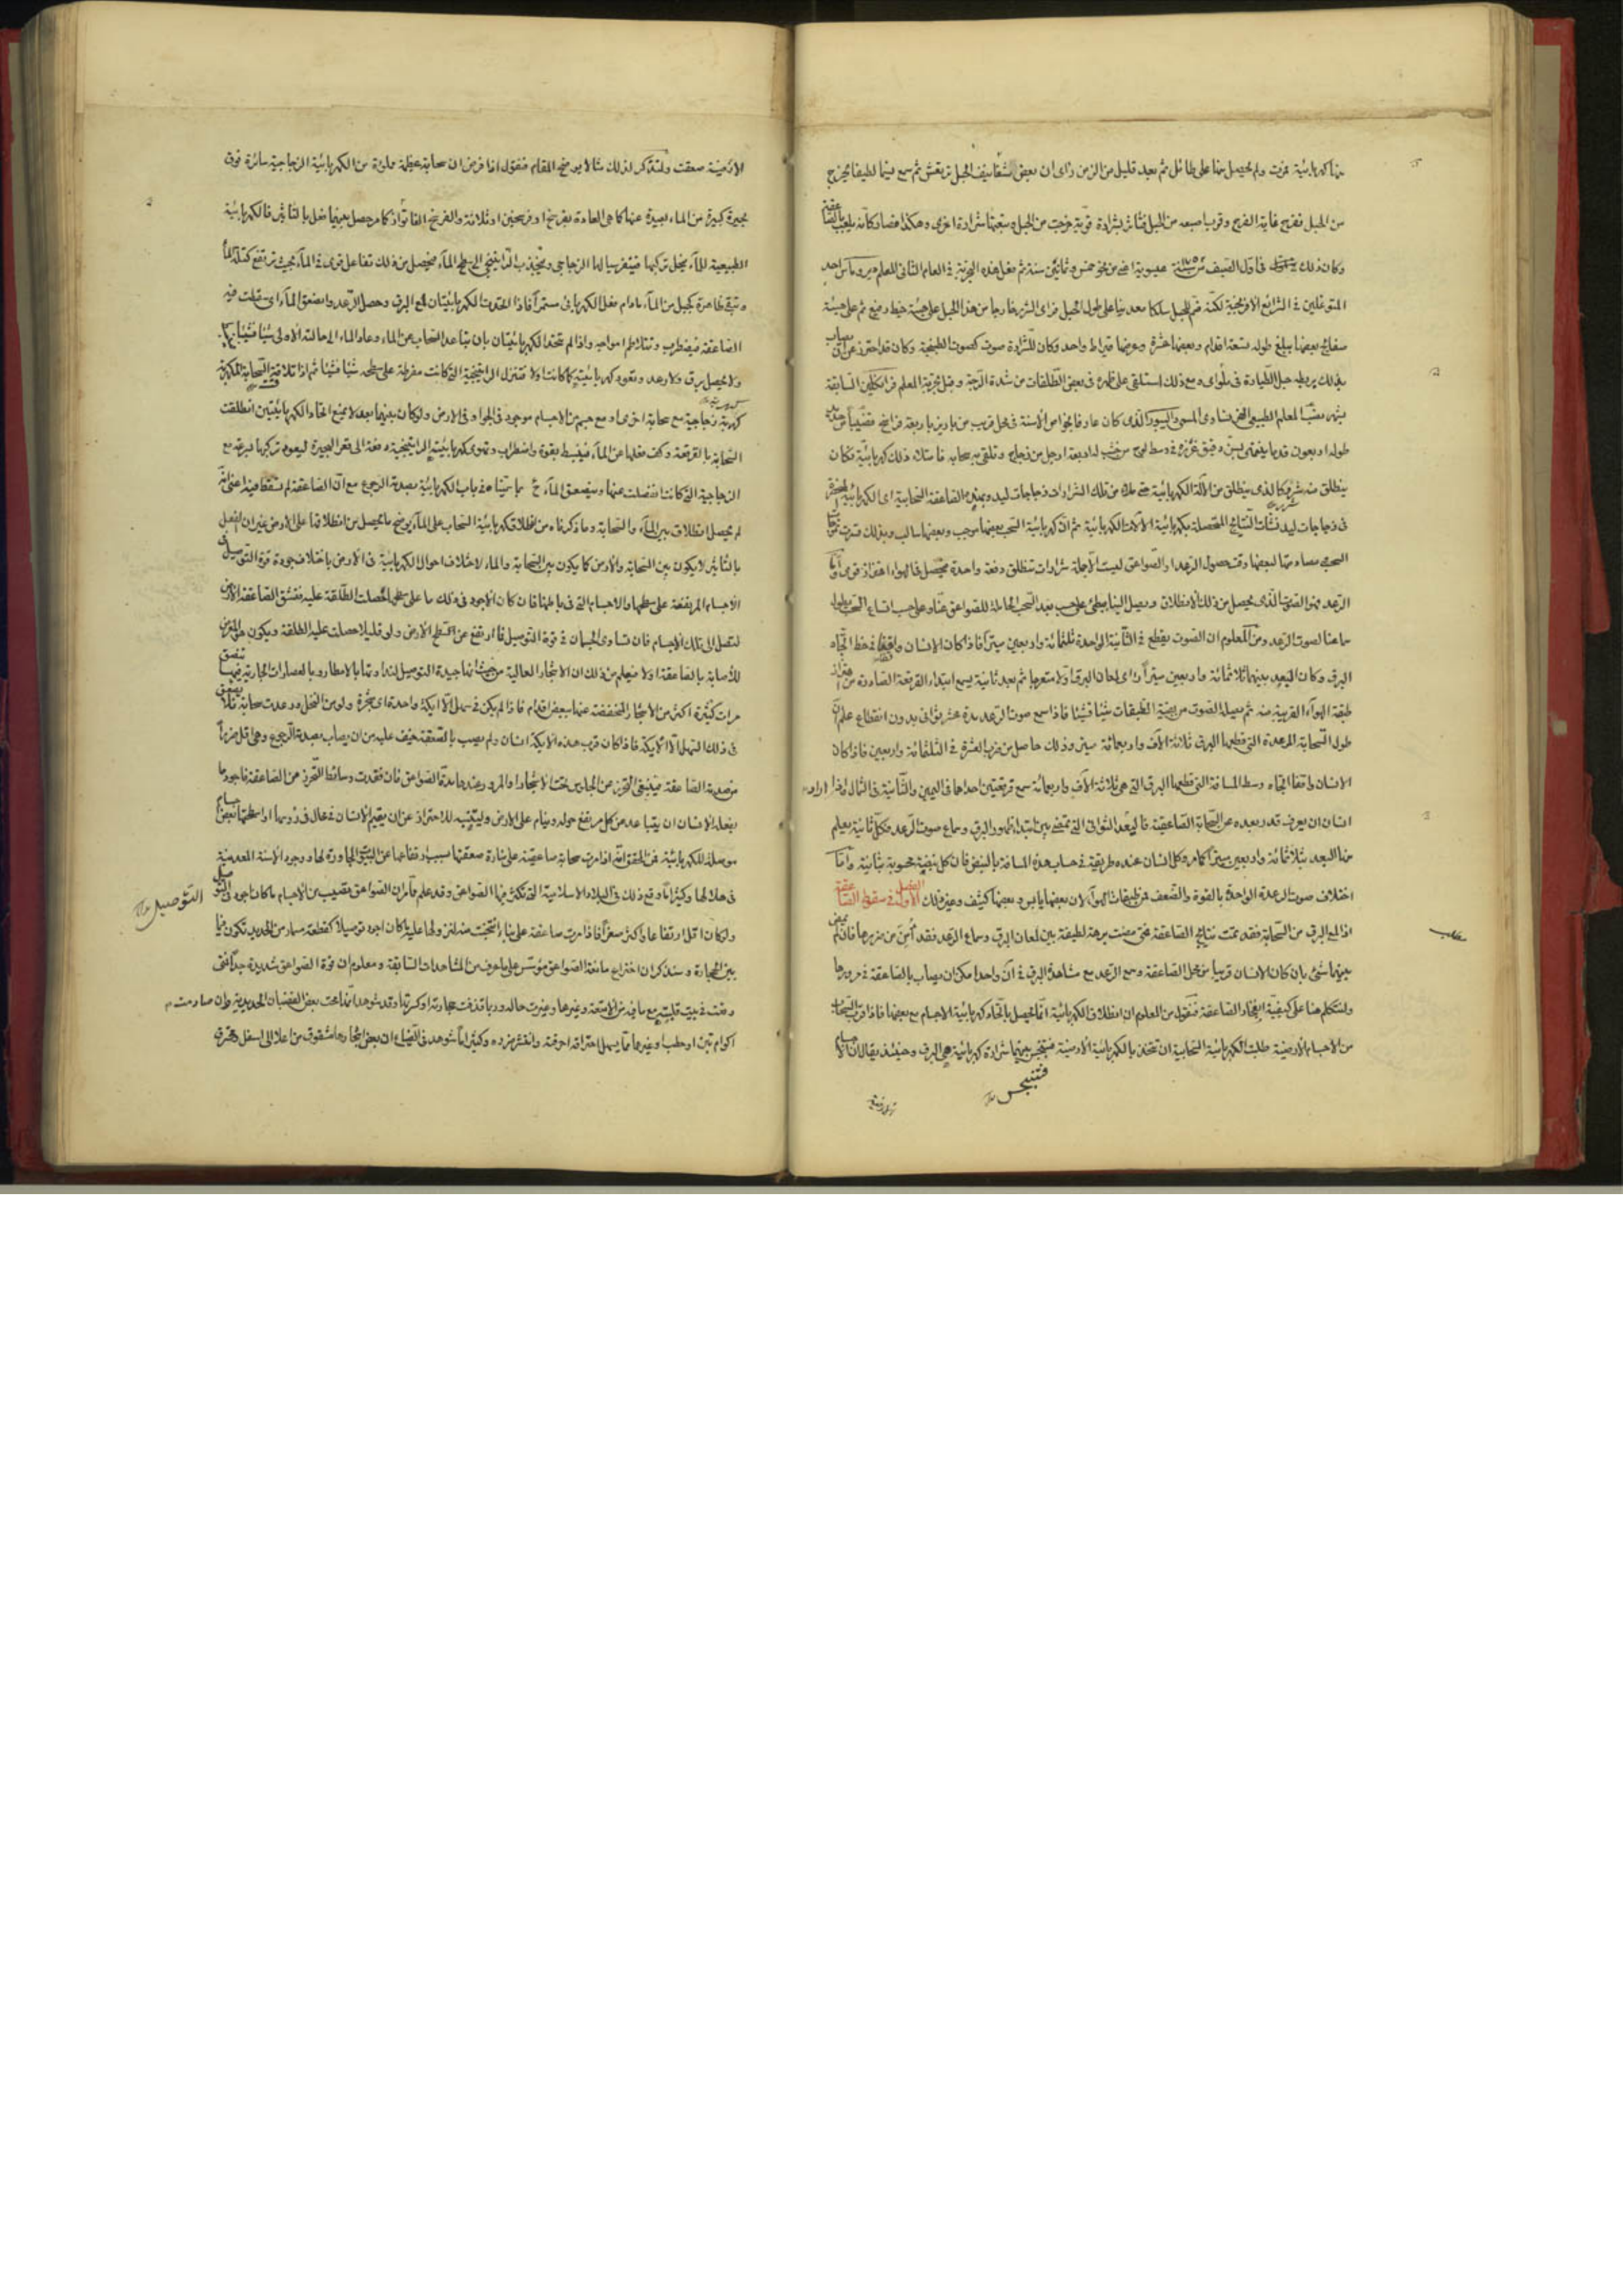 منها كهربائية غرفت ولم يحصل منها على طائل ثم بعد قليل من الزمن رأى ان بعض شفانيف الحبل ترتعش ثم سمع فيها لطيفا يخرج
من الحبل ففرح غاية الفرح وقرب اصبعه من الحبل فتأثر بشرارة قوية خرجت من الحبل وتبعتها شرارة اخرى وهكذا فصار كأنه يلعب بالصاعقة
وكان ذلك في اول الصيف سنة عيسوية اعنى من نحو خمس وثمانين سنة ثم فعل هذه التجربة في العام الثانى المعلم احد
المتوغلين في الشرائع الافرنجية لكنه ضم للحبل سلكا معدنيا على طول الحبل فرأى الشرر خارجا من هذا الحبل على هيئة خيط رفيع ثم على هيئة
صفائح بعضها يبلغ طوله تسعة اقدام وبعضها عشرة وعرضها قيراط واحد وكان للشرارة صوت كصوت الطبنجة وكان قد احترز عن ان يصاب
بذلك بربطه حبل الطيارة في ومع ذلك استلقى على ظهره في بعض الطلقات من شدة الرجة وقبل تجربة المعلم فرانكلين السابقة
بشهر نصب المعلم الطبيعى الفرنساوى المسمى الذى كان عارفا بخواص الأسنة في محل قريب من باريز باربعة فراسخ قضيبا من حديد
طوله اربعون قدما ينتهى بسن دقيق في وسط لوح من خشب له اربعة ارجل من زجاج وتلقى به سحابة فامتلأ ذلك كهربائية فكان
ينطلق منه شرر كالذى ينطلق من الآلة الكهربائية حتى ملأ من تلك الشرارات زجاجات ليد وبهذه الصاعقة السحابية اى الكهربائية المحضرة
في زجاجات ليد نشأت النتائج المتحصلة بكهربائية الآلات الكهربائية ثم ان كهربائية السحب بعضها موجب وبعضها سالب وبذلك
السحب مصادمتها لبعضها وقت حصول الرعد والصواعق ليست الا جملة شرارات تنطلق دفعة واحدة فيحصل في الهواء اهتزاز قوى وأما
الرعد فهو الصوت الذى يحصل من ذلك الانطلاق ويصل الينا ببطئ على حسب بعد السحب الحاملة للصواعق عنا وعلى حسب اتساع السحب بطول
سماعنا لصوت الرعد ومن المعلوم ان الصوت يقطع في الثانية الواحدة ثلثمائة واربعين ميترا فاذا كان الانسان واقفا في خط اتجاه
البرق وكان البعد بينهما ثلاثمائة واربعين ميترا رأى لمعان البرق اولا ثم بعد ثانية يسمع ابتداء القرقعة الصادرة من اهتزاز
طبقة الهواء القريبة منه ثم يصله الصوت من بقية الطبقات شيئا فشيئا فاذا سمع صوت الرعد مدة عشر ثوانى بدون انقطاع علم ان
طول السحابة المرعدة التى قطعها البرق ثلاثة آلاف واربعمائة ميتر وذلك حاصل من ضرب العشرة في الثلثمائة واربعين فاذا كان
الانسان واقفا اتجاه وسط المسافة التى قطعها البرق التى هى ثلاثة آلاف واربعمائة سمع قرقعتين احداهما في اليمين والثانية في الشمال واذا اراد
انسان ان يعرف قدر بعده عن السحابة الصاعقة فاليعد الثوانى التى تمضى بين ابتداء ظهور البرق وسماع صوت الرعد فكل ثانية يعلم
منها البعد بثلاثمائة واربعين ميترا كما مر وكل انسان عنده طريقة في حساب هذه المسافة بالنبض فان كل نبضة محسوبة بثانية وأما
اختلاف صوت الرعدة الواحدة بالقوة والضعف فمن طبقات الهواء لان بعضها يابس وبعضها كثيف وغير ذلك الفصل الاول في سقوط الصاعقة
اذا لمع البرق من السحابة فقد تمت نتائج الصاعقة فمتى مضت برهة لطيفة بين لمعان البرق وسماع الرعد فقد أمن من ضررها فان لم يمض
بينهما شئ بان كان الانسان قريبا من محل الصاعقة وسمع الرعد مع مشاهدة البرق في آن واحد امكن ان يصاب بالصاعقة في مرورها
ولنتكلم هنا على كيفية انفجار الصاعقة فنقول من المعلوم ان انطلاق الكهربائية انما يحصل باتحاد كهربائية الاجسام مع بعضها فاذا قرب السحاب
من الاجسام الارضية طلبت الكهربائية السحابية ان تتحد بالكهربائية الارضية فينبجس بينهما شرارة كهربائية هى البرق وحينئذ يقال ان الاجسام
فتنبجس
الارضية صعقت ولنذكر لذلك مثالا يوضح المقام فنقول اذا فرض ان سحابة عظيمة ملوءة من الكهربائية الزجاجية سائرة فوق
بحيرة كبيرة من الماء بعيدة عنها كما هى العادة بفرسخ او فرسخين او ثلاثة والفرسخ الفا تواز كما مر حصل بينهما فعل بالتأثير فالكهربائية
الطبيعية للماء ينحل تركيبها فيتنفر سيالها الزجاجى وينجذب الراتينجى الى سطح الماء فيحصل من ذلك تفاعل قوى في الماء بحيث ترتفع كتلة الماء
وتبقى ظاهرة كجبل من الماء مادام فعل الكهربائى مستمرا فاذا اتحدت الكهربائيتان لمع البرق وحصل الرعد وانصعق الماء اى سقطت فيه
الصاعقة فيضطرب وتتلاطم امواجه واذا لم تتحد الكهربائيتان بان تباعد السحاب عن الماء وعاد الماء الى حالته الاولى شيئا فشيئا
ولا يحصل برق ولا رعد وتعود كهربائيته كما كانت اولا فتنزل الراتينجية التى كانت مفرطة على سطحه شيئا فشيئا ثم اذا تلاقت السحابة المكهربة
كهربة زجاجية مع سحابة اخرى او مع جسم من الاجسام موجود في الجو او في الارض ولو كان بينهما بعد لا يمنع اتحاد الكهربائيتين انطلقت
السحابة بالقرقعة وكف فعلها عن الماء فينبسط بقوة واضطراب وتهوى كهربائيته الراتينجية دفعة الى قعر البحيرة ليعود تركيبها بسرعة مع
الزجاجية التى كانت انفصلت عنها وينصعق الماء ح بما سميناه في باب الكهربائية بصدمة الرجوع مع ان الصاعقة لم تسقط فيه اعنى انه
لم يحصل انطلاق بين الماء والسحابة وما ذكرناه من انطلاق كهربائية السحاب على الماء يوضح ما يحصل من انطلاقها على الارض غير ان الفعل
بالتأثير لا يكون بين السحابة والارض كما يكون بين السحابة والماء لاختلاف احوال الكهربائية في الارض باختلاف جودة قوة التوصيل في
الاجسام المرتفعة على سطحها والاجسام التى في باطنها فان كان الاجود في ذلك ما على سطحها حصلت الطلقة عليه فتشق الصاعقة الارض
لتصل الى تلك الاجسام فان تساوى الجسمان في قوة التوصيل فما ارتفع عن سطح الارض ولو قليلا حصلت عليه الطلقة ويكون هو المعرض
للاصابة بالصاعقة اولا فيعلم من ذلك ان الاشجار العالية من حيث انها جيدة التوصيل لنداوتها بالامطار وبالعصارات الجارية فيها تنصعق
مرات كثيرة اكثر من الاشجار المنخفضة عنها ببعض اقدام فاذا لم يكن في سهل الا ايكة واحدة اى شجرة ولو من النخل ورعدت سحابة
في ذلك السهل الا الايكة فاذا كان قرب هذه الايكة انسان ولم يصب بالصعقة خيف عليه من ان يصاب بصدمة الرجوع وهى اقل ضررا
من صدمة الصاعقة فينبغى التحرز عن الجلوس تحت الاشجار او المرور عندها مدة الصواعق فان فقدت وسائط التحرز من الصاعقة فاجود ما
يفعله الانسان ان يتباعد عن كل مرتفع حوله وينام على الارض وليتنبه للاحتراز عن ان يقيم الانسان في محال في رؤسها او اسطحتها بعض اجسام
موصلة للكهربائية فمن المحقق انه اذا مرت سحابة صاعقة على منارة صعقتها بسبب ارتفاعها عن البيوت المجاورة لها ووجود الاسنة المعدنية
في هلالها وكثيرا ما وقع ذلك في البلاد الاسلامية التى تكثر فيها الصواعق وقد علم مما مر ان الصواعق تصيب من الاجسام ما كان اجود في التوصيل
التوصيل
ولو كان اقل ارتفاعا واكثر سمكا فاذا مرت صاعقة على بناء انتخبت منه لنزولها عليه ما كان اجود توصيلا كقطعة مسمار من الحديد تكون فيها
بين الحجارة وسنذكر ان اختراع مانعة الصواعق مؤسس على ما عرف من المشاهدات السابقة ومعلوم ان قوة الصواعق شديدة جدا فمتى
وقعت في بيت قلبته مع ما فيه من الامتعة وغيرها وغيرت حاله وربما قذفت حجارته او كسرتها وقد شوهد انها محت بعض القضبان الحديدية وان صادمت
اكوام تبن او حطب او غيرها مما يسهل احتراقه احرقته وانتشر ضرره وكثيرا ما شوهد في الفضاء ان بعض اشجارها مشقوق من اعلا الى اسفل ومحرق